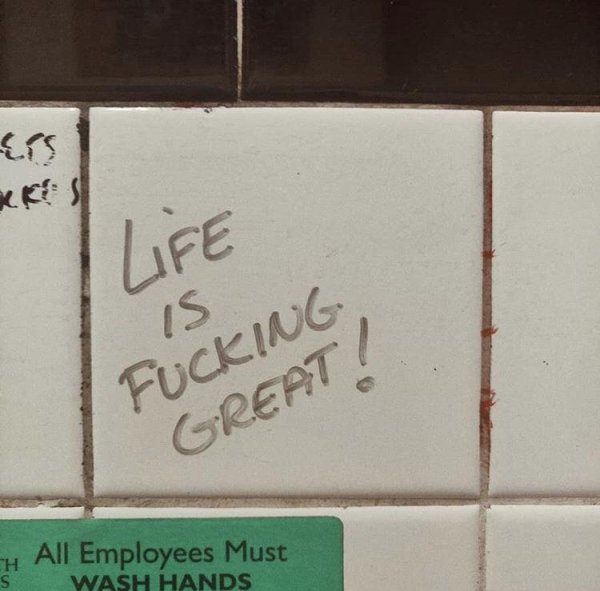 LIFE
IS
FUCKING
GREAT!
All Employees Must
WASH HANDS